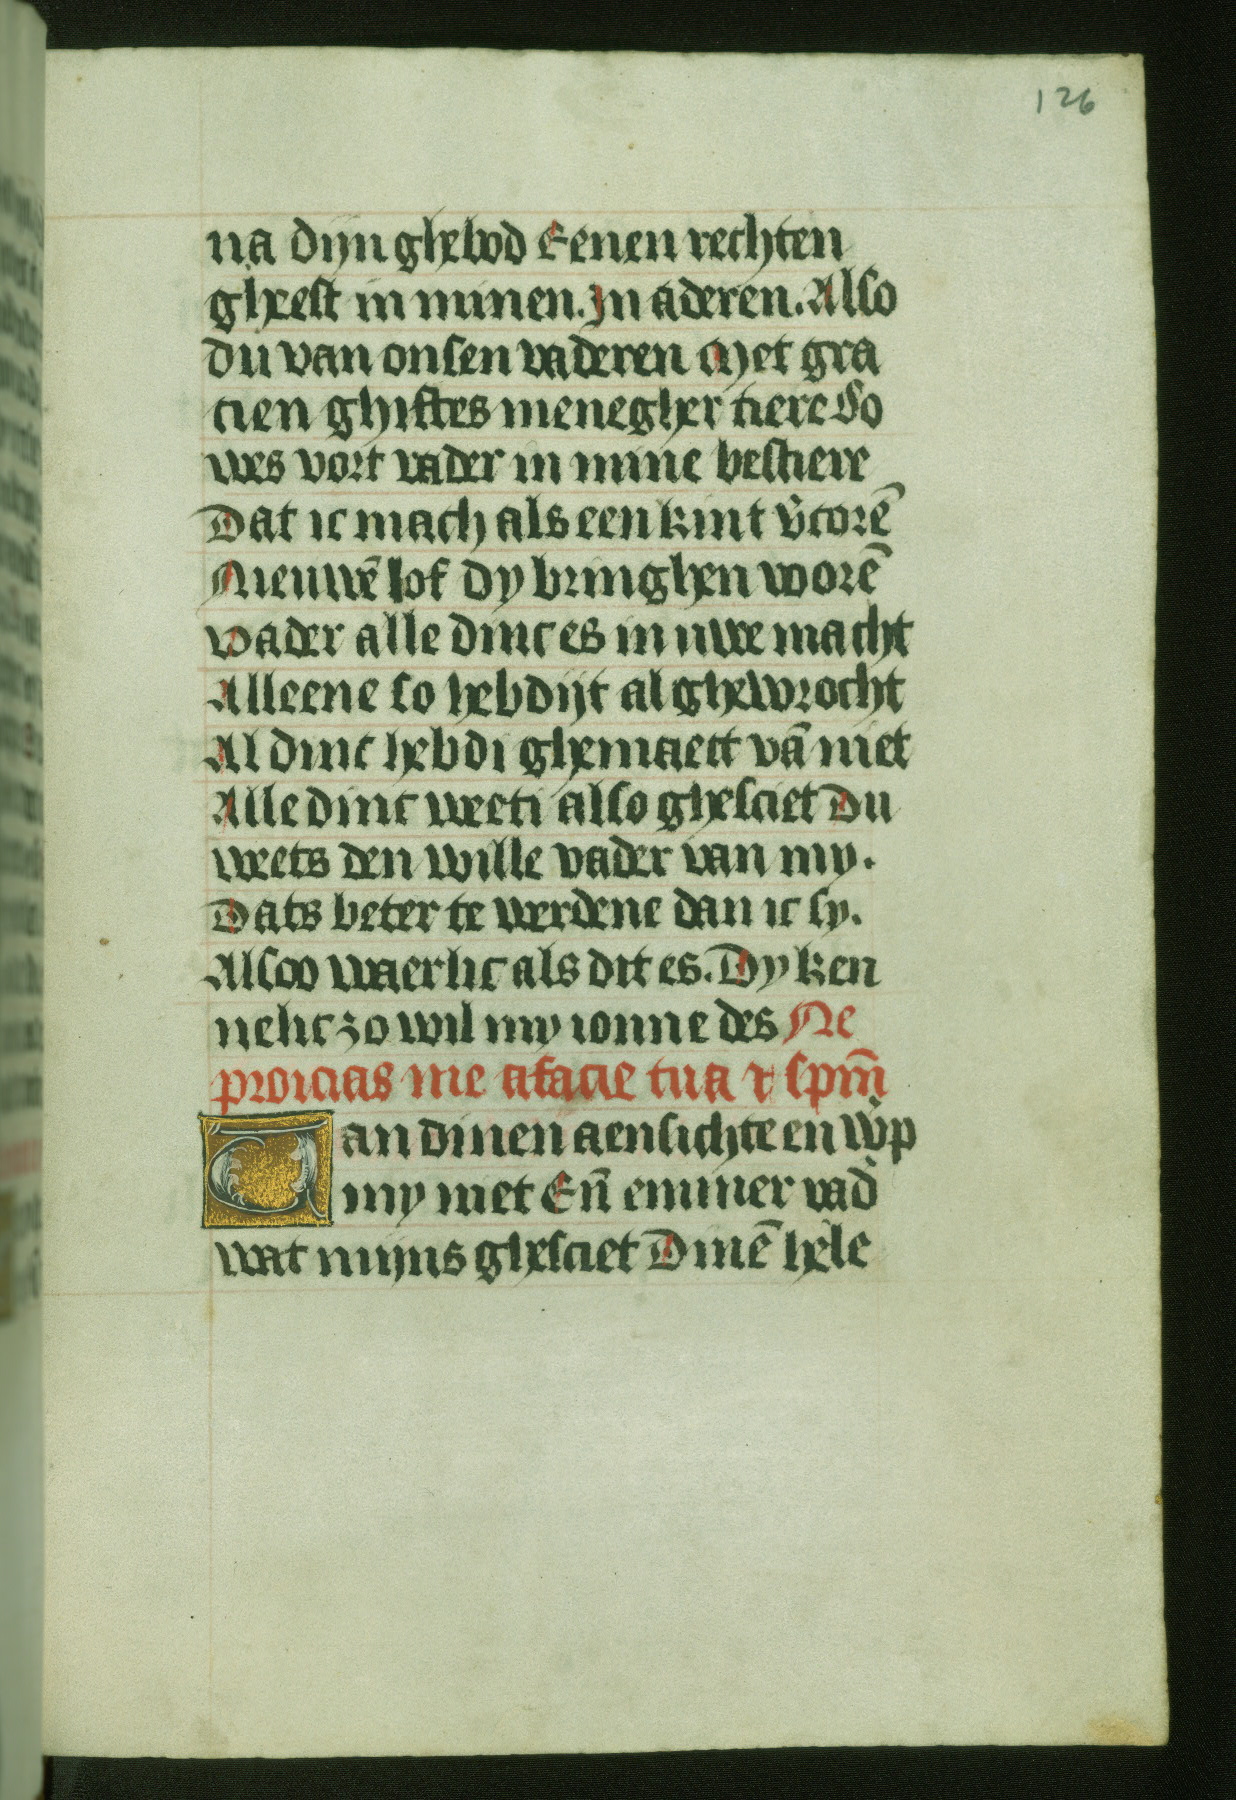 126
na dijn ghebod Eenen rechten
gheest in minen. In aderen. Also
du van onsen vaderen Met gra
cien ghiftes menegher tiere So
wes vort vader in mine bestiere
Dat ic mach als een kint v̾corē
Nieuwē lof dy bringhen vorē
Vader alle dinc es in uwe macht
Alleene so hebdijt al ghewrocht
Al dinc hebdi ghemaect vā niet
Alle dinc weeti also ghesciet Du
weets den wille vader van my.
Dats beter te werdene dan ic sy.
Alsoo waerlic als dit es. Dy ken
nelic zo wil my ionne des Ne
proicias me a facie tua ⁊ spm̄
Van dinen aensichte en w̾p
my niet En̄ emmer vad̾
wat mijns ghesciet Dinē hele